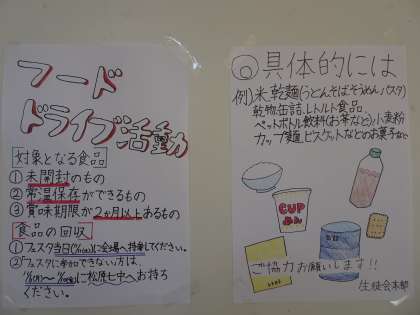 フード
ドライブ活動
対象となる食品
①未開封のもの
②常温保存ができるもの
③賞味期限が2か月以上あるもの
食品の回収
①フェスタ当日に会場へ持参してください。
②フェスタに参加できない方は、
に松原七中へお持ち
ください。
◎具体的には
例)米,乾麺(うどん,そば,そうめん,パスタ)
乾物,缶詰,レトルト食品
ペットボトル飲料(お茶など),小麦粉
カップ麺,ビスケットなどのお菓子
CUP
めん
ご協力お願いします!!
生徒会本部